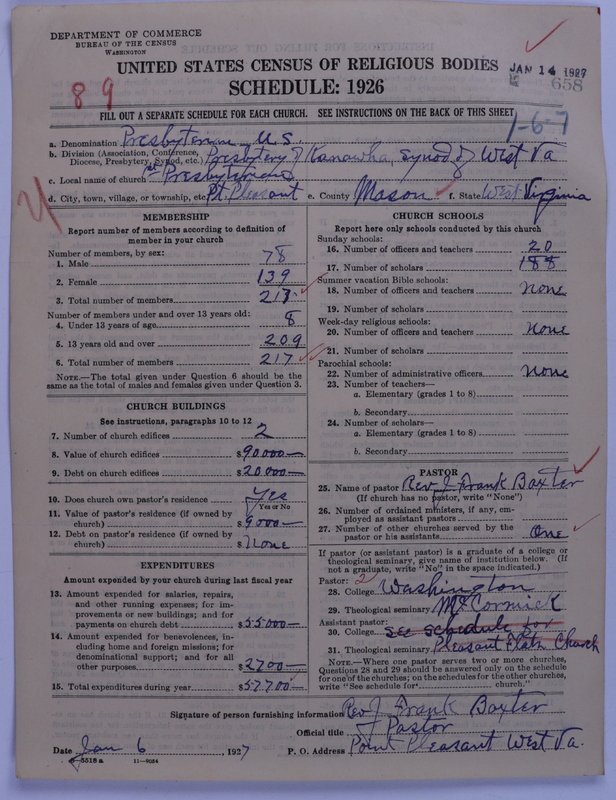 DEPARTMENT OF COMMERCE
BUREAU OF THE CENSUS
WASHINGTON
UNITED STATES CENSUS OF RELIGIOUS BODIES
JAN 14 1927
658
SCHEDULE: 1926
8 9
FILL OUT A SEPARATE SCHEDULE FOR EACH CHURCH. SEE INSTRUCTIONS ON THE BACK OF THIS SHEET
1-6-7
a. Denomination Presbyterian U.S.
b. Division (Association, Conference, Diocese, Presbytery, Synod, etc.) Presbytery of Kanawha, Synod of West Va
c. Local name of church 1st Presbyterian
d. City, town, village, or township, etc. Pt. Pleasant e. County Mason f. State West Virginia
MEMBERSHIP
Report number of members according to definition of
member in your church
Number of members, by sex:
1. Male 78
2. Female 139
3. Total number of members 217
Number of members under and over 13 years old:
4. Under 13 years of age 8
5. 13 years old and over 209
6. Total number of members 217
NOTE.—The total given under Question 6 should be the
same as the total of males and females given under Question 3.
CHURCH BUILDINGS
See instructions, paragraphs 10 to 12
7. Number of church edifices 2
8. Value of church edifices $90000—
9. Debt on church edifices $20000—
10. Does church own pastor's residence Yes
Yes or No
11. Value of pastor's residence (if owned by
church) $9000—
12. Debt on pastor's residence (if owned by
church) $None
EXPENDITURES
Amount expended by your church during last fiscal year
13. Amount expended for salaries, repairs,
and other running expenses; for im-
provements or new buildings; and for
payments on church debt $55000—
14. Amount expended for benevolences, in-
cluding home and foreign missions; for
denominational support; and for all
other purposes $2700—
15. Total expenditures during year $57700—
CHURCH SCHOOLS
Report here only schools conducted by this church
Sunday schools:
16. Number of officers and teachers 20
17. Number of scholars 188
Summer vacation Bible schools:
18. Number of officers and teachers None
19. Number of scholars
Week-day religious schools:
20. Number of officers and teachers None
21. Number of scholars
Parochial schools:
22. Number of administrative officers None
23. Number of teachers—
a. Elementary (grades 1 to 8)
b. Secondary
24. Number of scholars—
a. Elementary (grades 1 to 8)
b. Secondary
PASTOR
25. Name of pastor Rev. J. Frank Baxter
(If church has no pastor, write "None")
26. Number of ordained ministers, if any, em-
ployed as assistant pastors
27. Number of other churches served by the
pastor or his assistants One
If pastor (or assistant pastor) is a graduate of a college or
theological seminary, give name of institution below. (If
not a graduate, write "No" in the space indicated.)
Pastor: 2
28. College Washington
29. Theological seminary McCormick
Assistant pastor:
30. College see schedule for
31. Theological seminary Pleasant Flats Church
NOTE.—Where one pastor serves two or more churches,
Questions 28 and 29 should be answered only on the schedule
for one of the churches; on the schedules for the other churches,
write "See schedule for church."
Signature of person furnishing information Rev J Frank Baxter
Official title Pastor
Date Jan 6, 1927 P. O. Address Point Pleasant West Va.
8—5518 a 11—9084